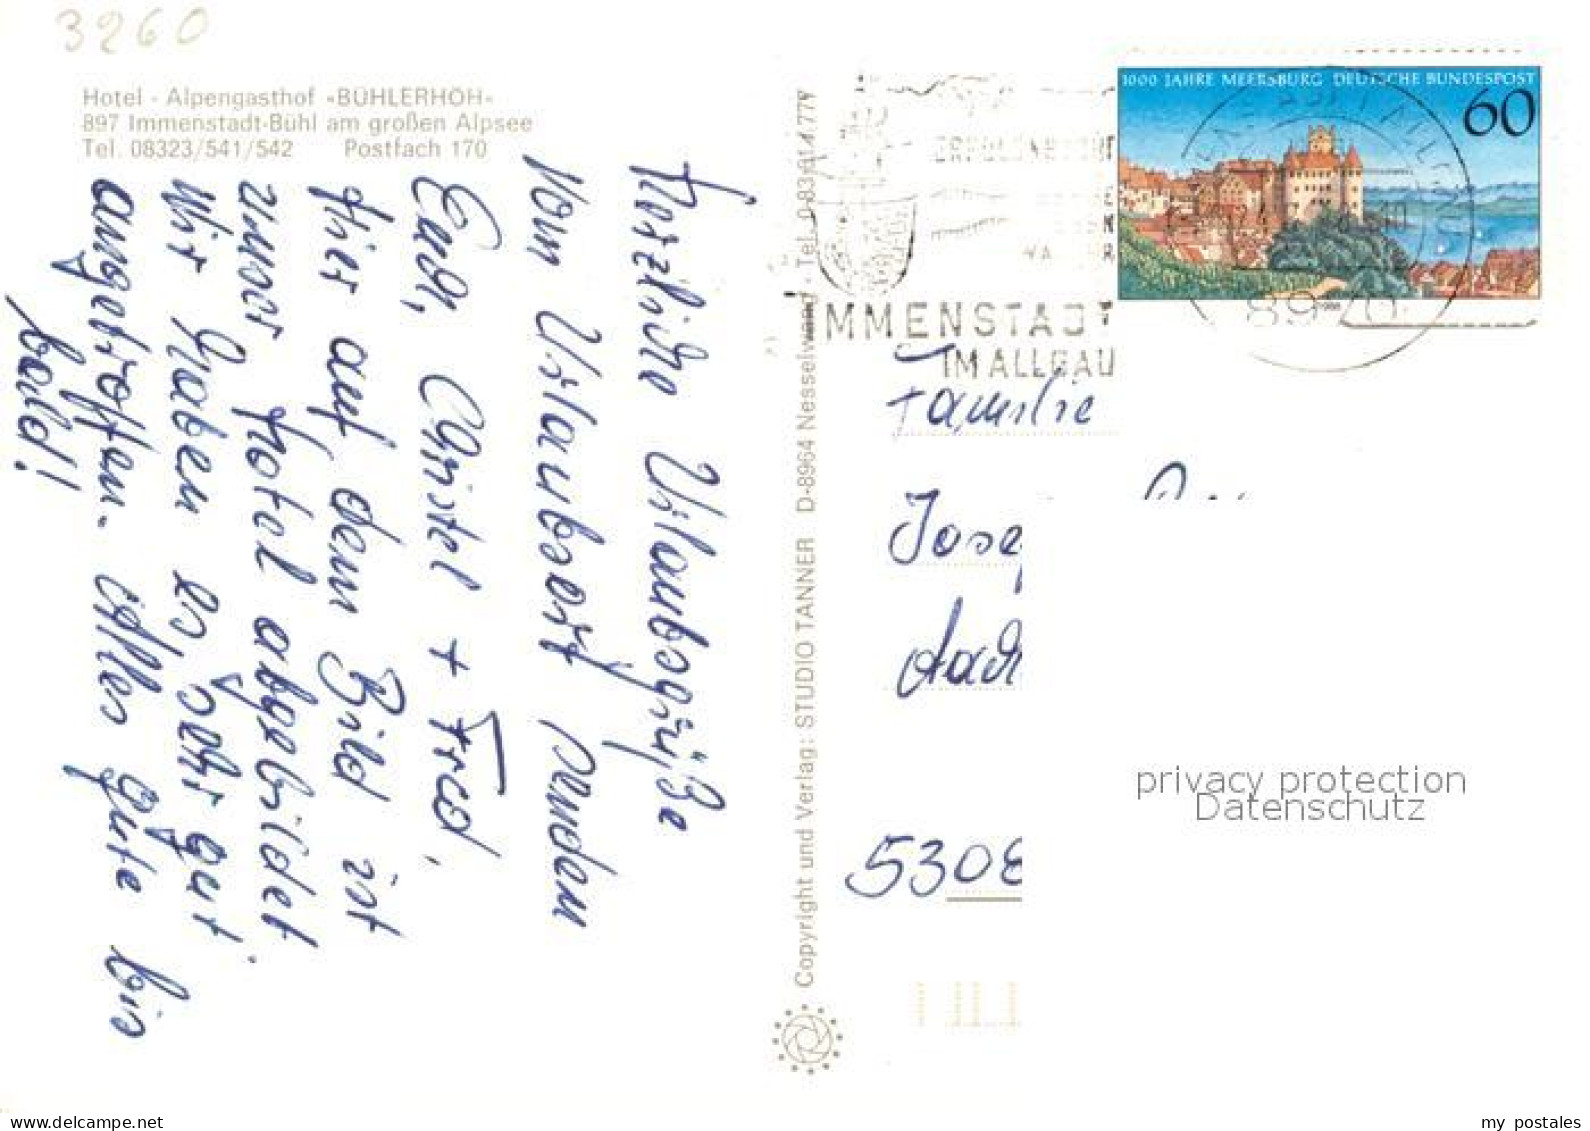 3260
Hotel - Alpengasthof «BÜHLERHOH»
897 Immenstadt-Bühl am großen Alpsee
Tel. 08323/541/542 Postfach 170
Herzliche Urlaubsgrüße
vom Urlaubsort senden
Euch, Christel + Fred,
Hier auf dem Bild ist
unser Hotel abgebildet
Wir haben es sehr gut
angetroffen. Alles Gute bis
bald!
Copyright und Verlag: STUDIO TANNER D-8964 Nesselwang - Tel. 0-83-61/
1000 JAHRE MEERSBURG DEUTSCHE BUNDESPOST
60
MMENSTADT
IM ALLGÄU
8970
Familie
Jose
5308
privacy protection
Datenschutz
my postales